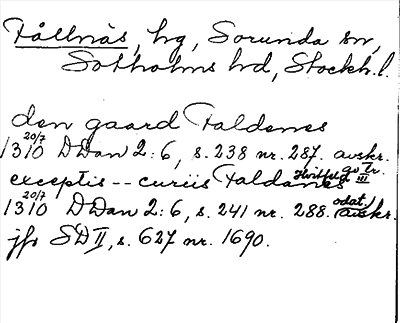 Fållnäs, hg, Sorunda sn,
Sotholms hd, Stockh. l.
den gaard Faldenes
1310 20/7 DDan 2:6, s. 238 nr. 287. avskr.
exceptis -- curiis Faldanes Hvitfeld
1310 20/7 DDan 2:6, s. 241 nr. 288. odat. avskr.
jfr SD II, s. 627 nr. 1690.